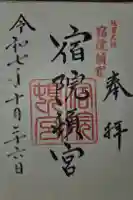 奉拝
宿院頓宮
令和七年十月二十六日